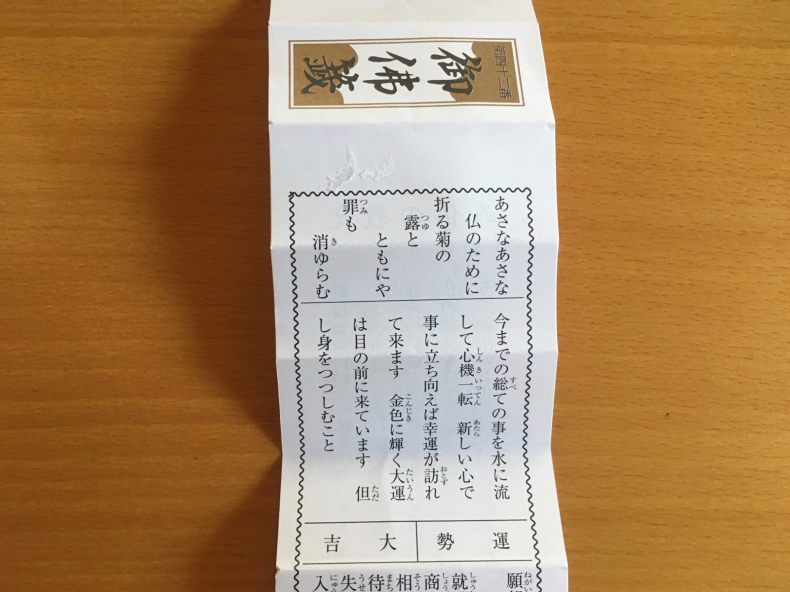 第四十二番
御佛籤
あさなあさな
仏のために
折る菊の
露と
ともにや
罪も
消ゆらむ
今までの総ての事を水に流
して心機一転　新しい心で
事に立ち向えば幸運が訪れ
て来ます　金色に輝く大運
は目の前に来ています　但
し身をつつしむこと
運勢
大吉
願
就
商
相
待
失
入